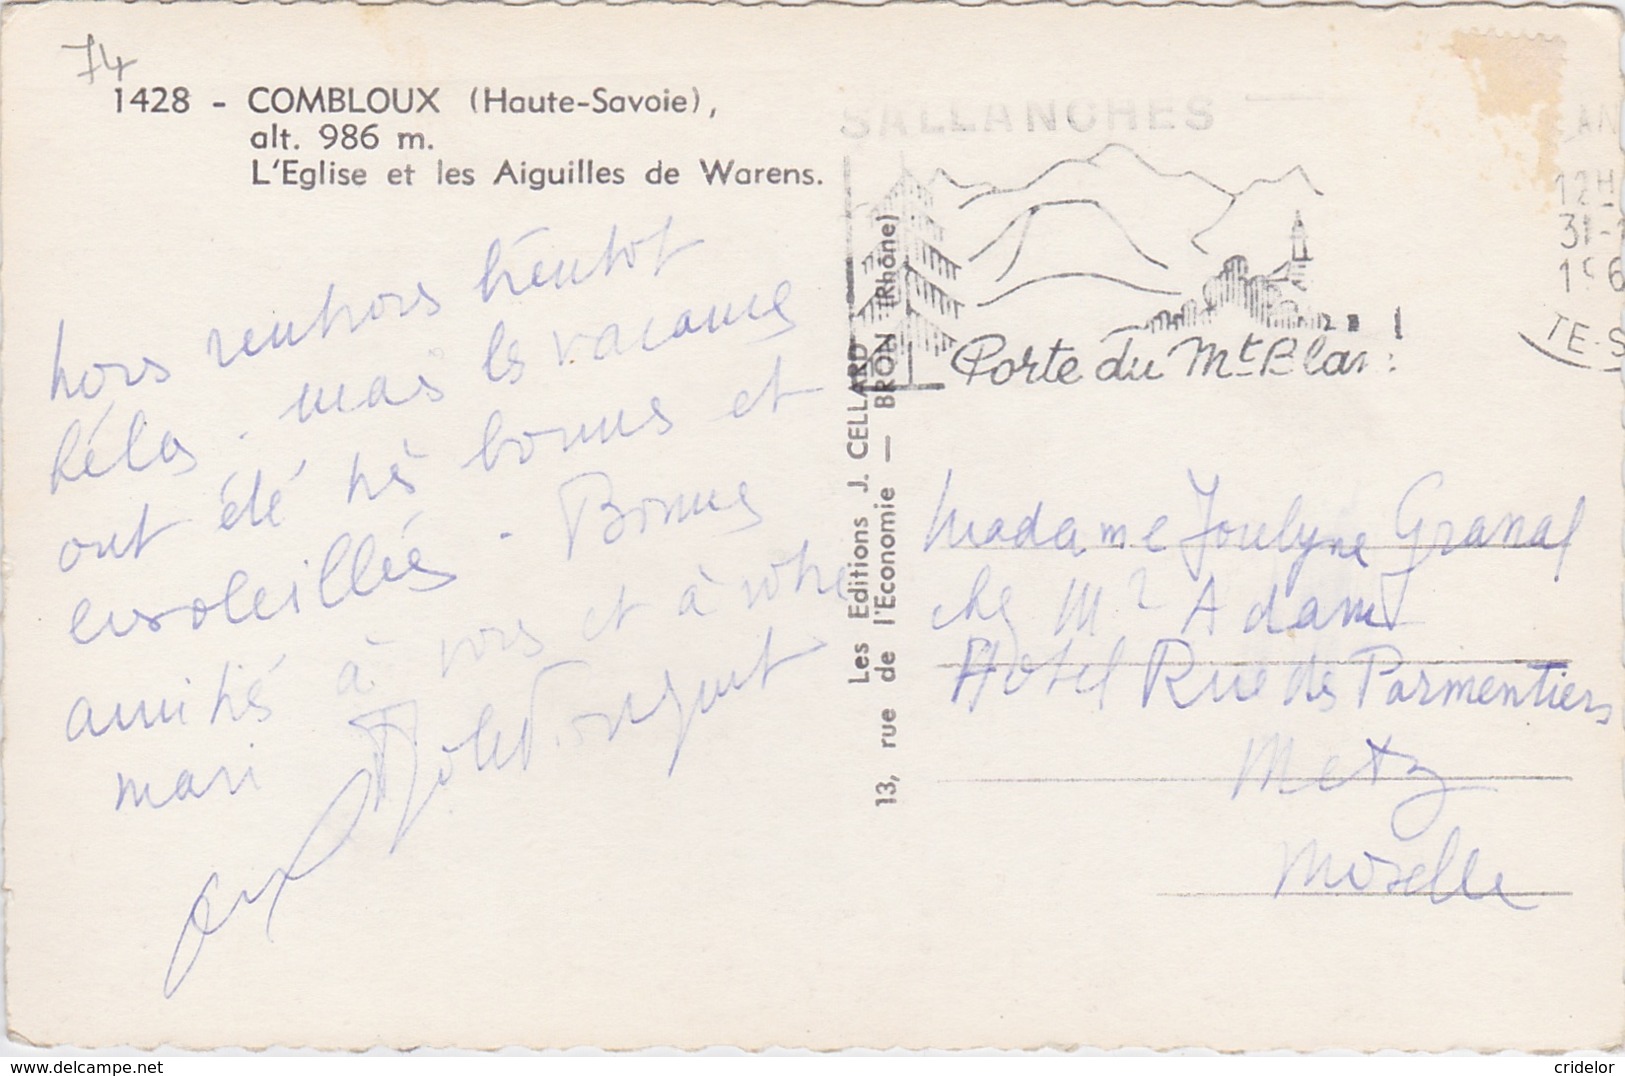 74
1428 - COMBLOUX (Haute-Savoie),
alt. 986 m.
L'Eglise et les Aiguilles de Warens.
nous rentrons bientôt
hélas. mais les vacances
ont été très bonnes et
ensoleillées - Bonnes
amitiés à vous et à votre
mari
Les Editions J. CELLARD
13, rue de l'Economie — BRON (Rhône)
SALLANCHES
Porte du Mt Blanc
12H
31-
196
TE-S
Madame Jocelyne Granal
chez Mr Adam
Hotel Rue des Parmentiers
Metz
Moselle
delcampe.net
cridelor